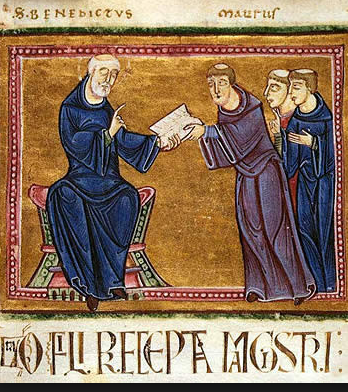 S. BENEDICTVS MAURUS
O FILI PRECEPTA MAGISTRI: